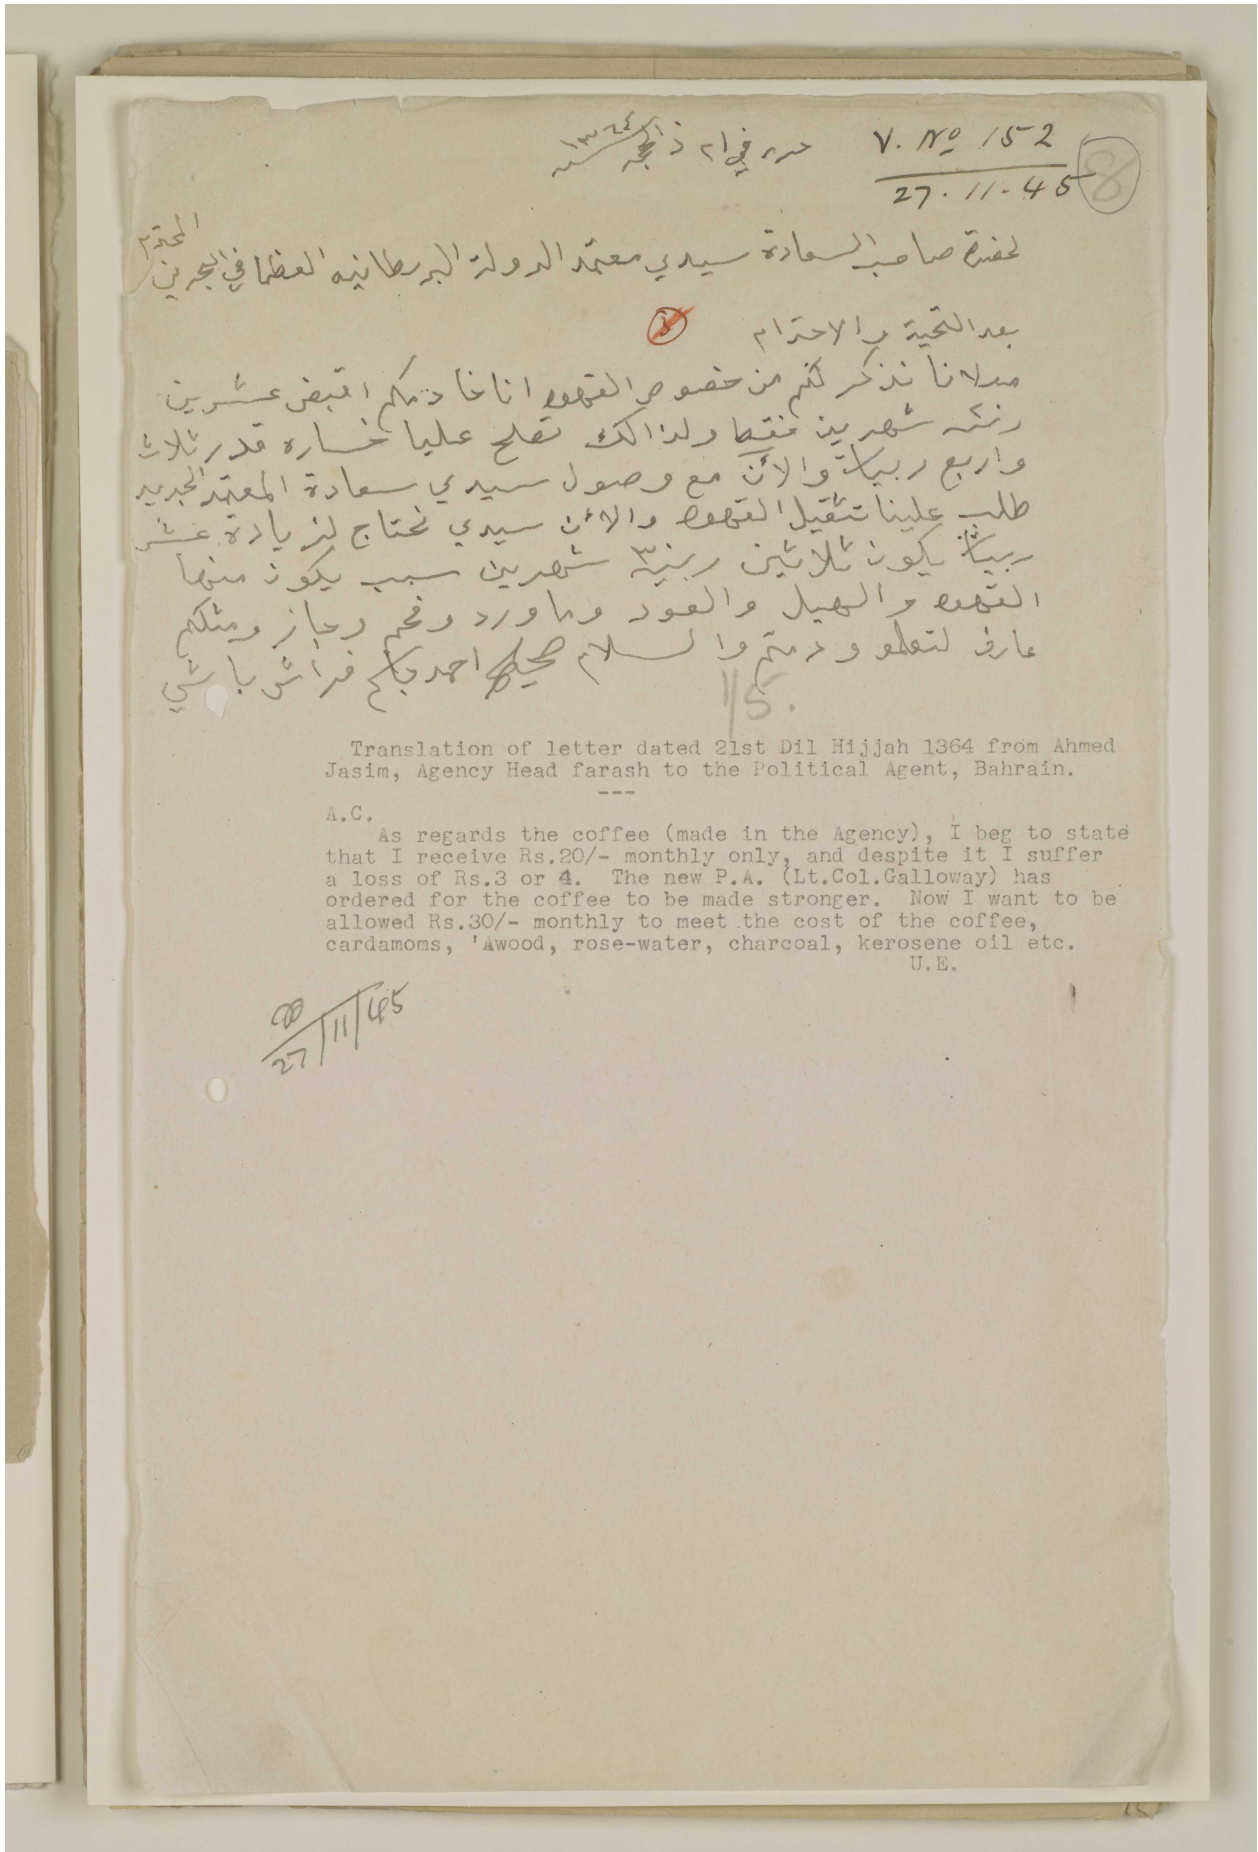 V. No 152
27.11.45
8
حرر في ٢١ ذالحجه سنه ١٣٦٤
لحضرة صاحب السعادة سيدي معتمد الدولة البريطانيه العظما في البحرين
المحترم
بعد التحية والاحترام
مولانا نذكر لكم من خصوص القهوه انا خادمكم اقبض عشرين
شهرين فقط ولذالك تطلع عليا خساره قدر ثلاث
واربع ربيات والأن مع وصول سيدي سعادة المعتمد الجديد
طلب علينا تثقيل القهوه والأن سيدي نحتاج لزيادة عشر
ربيات يكون ثلاثين ربية ٣٠ شهرين سبب يكون منها
القهوه والهيل والعود وماورد وفحم وجاز ومثلكم
عارف لتعلمو ودمتم والسلام صحيح احمد جاسم فراش باشي
1/5.
Translation of letter dated 21st Dil Hijjah 1364 from Ahmed
Jasim, Agency Head farash to the Political Agent, Bahrain.
---
A.C.
As regards the coffee (made in the Agency), I beg to state
that I receive Rs.20/- monthly only, and despite it I suffer
a loss of Rs.3 or 4. The new P.A. (Lt.Col.Galloway) has
ordered for the coffee to be made stronger. Now I want to be
allowed Rs.30/- monthly to meet the cost of the coffee,
cardamoms, 'Awood, rose-water, charcoal, kerosene oil etc.
U.E.
27/11/45